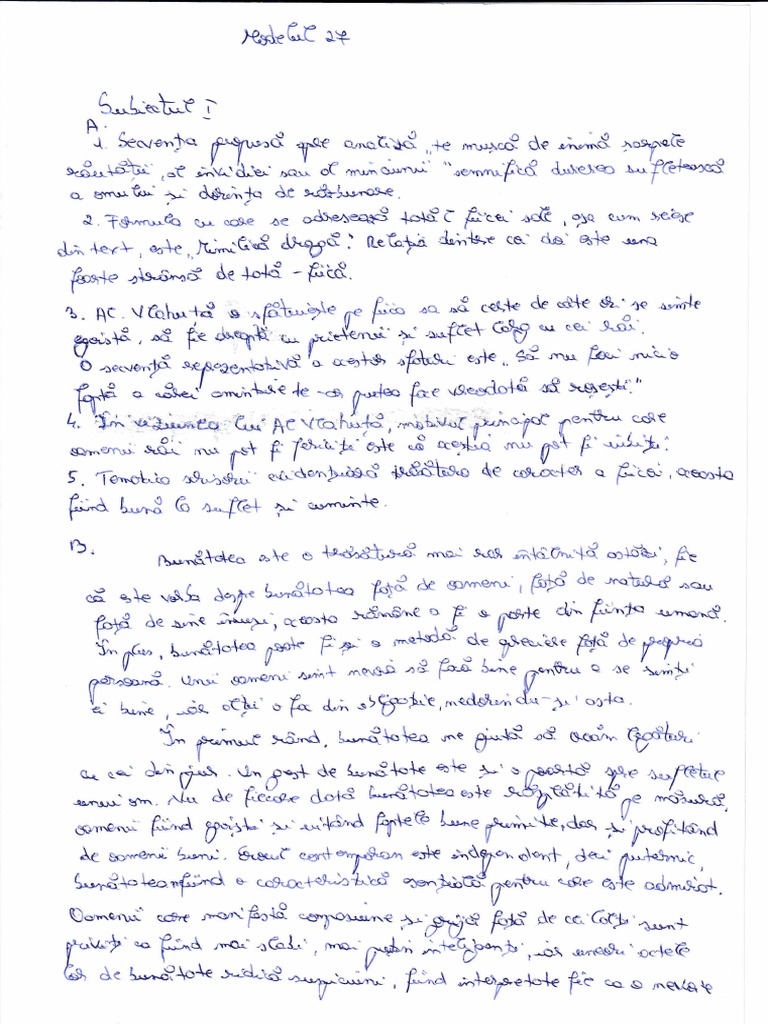 Modelul 27
Subiectul I
A.
1. Secvența propusă spre analiză „te mușcă de inimă șarpele
răutății, al invidiei sau al minciunii" semnifică durerea sufletească
a omului și dorința de răzbunare.
2. Formula cu care se adresează tatăl fiicei sale, așa cum reiese
din text, este „Mimilică dragă". Relația dintre cei doi este una
foarte strânsă de tată - fiică.
3. Al. Vlahuță o sfătuiește pe fiica sa să ceste de câte ori se simte
egoistă, să fie dreaptă cu prietenii și suflet larg cu cei răi.
O secvență reprezentativă a acestor sfaturi este „Să nu faci nicio
faptă a cărei amintire te-ar putea face vreodată să roșești."
4. În viziunea lui Al Vlahuță, motivul principal pentru care
oamenii răi nu pot fi fericiți este că aceștia nu pot fi iubiți.
5. Tematica scrisorii evidențiază trăsătura de caracter a fiicei, aceasta
fiind bună la suflet și cuminte.
B.
Bunătatea este o trăsătură mai rar întâlnită astăzi, fie
că este vorba despre bunătatea față de oameni, față de natură sau
față de sine însuși, aceasta rămâne a fi o parte din ființa umană.
În plus, bunătatea poate fi și o metodă de față de propria
persoană. Unii oameni simt nevoia să facă bine pentru a se simți
ei bine, iar alții o fac din obligație, nedorindu-și asta.
În primul rând, bunătatea ne ajută să creăm legături
cu cei din jur. Un gest de bunătate este și o poartă spre sufletul
unui om. Nu de fiecare dată bunătatea este răsplătită pe măsură,
oamenii fiind egoiști și uitând faptele bune primite, dar și profitând
de oamenii buni. Eroul contemporan este independent, deci puternic,
bunătatea nefiind o caracteristică esențială pentru care este admirat.
Oamenii care manifestă compasiune și grijă față de ceilalți sunt
priviți ca fiind mai slabi, mai puțin inteligenți, iar uneori actele
lor de bunătate ridică suspiciuni, fiind interpretate fie ca o nevoie